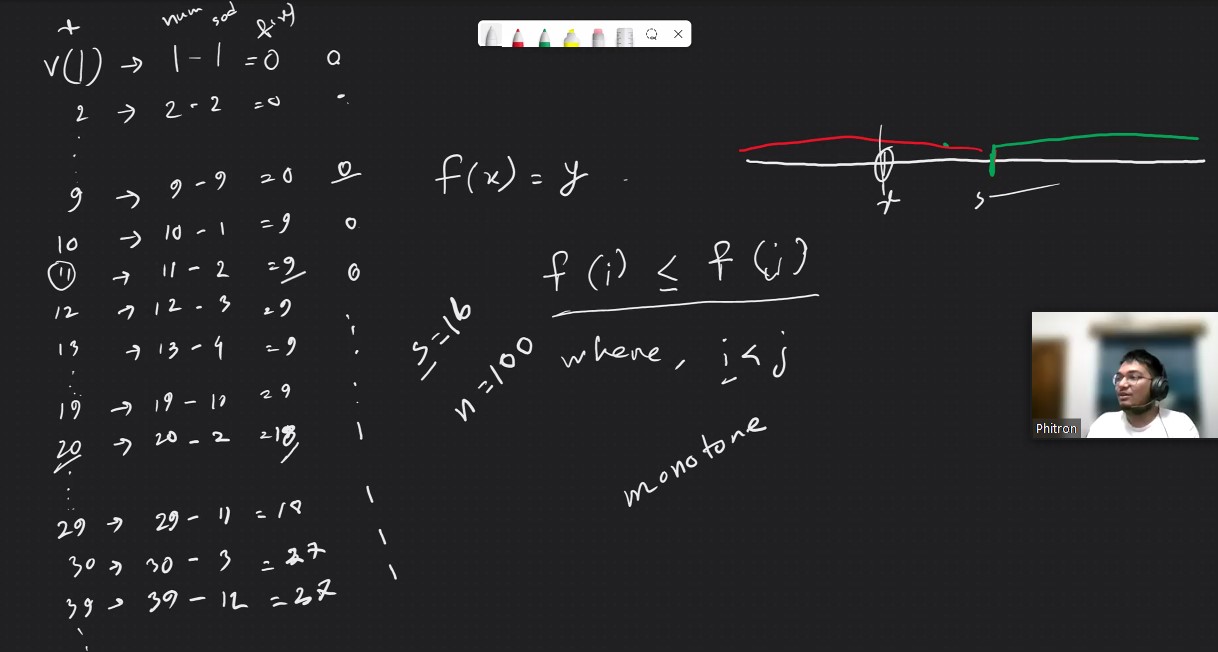 x num sod f(x)
v(1) → 1 - 1 = 0 0
2 → 2 - 2 = 0
9 → 9 - 9 = 0 0
10 → 10 - 1 = 9 0
11 → 11 - 2 = 9 0
12 → 12 - 3 = 9
13 → 13 - 4 = 9
19 → 19 - 10 = 9
20 → 20 - 2 = 18 1
29 → 29 - 11 = 18 1
30 → 30 - 3 = 27 1
39 → 39 - 12 = 27 1
f(x) = y
f(i) ≤ f(j)
where, i < j
s = 16
n = 100
monotone
x s
Phitron